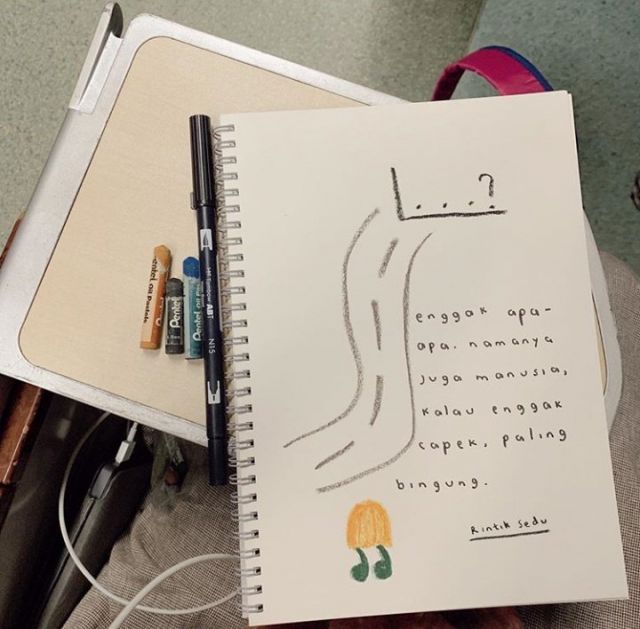 L...?
enggak apa-
apa. namanya
juga manusia,
kalau enggak
capek, paling
bingung.
Rintik Sedu
Pentel Oil Pastels
Pentel
Pentel Oil Pas
ABT
N15